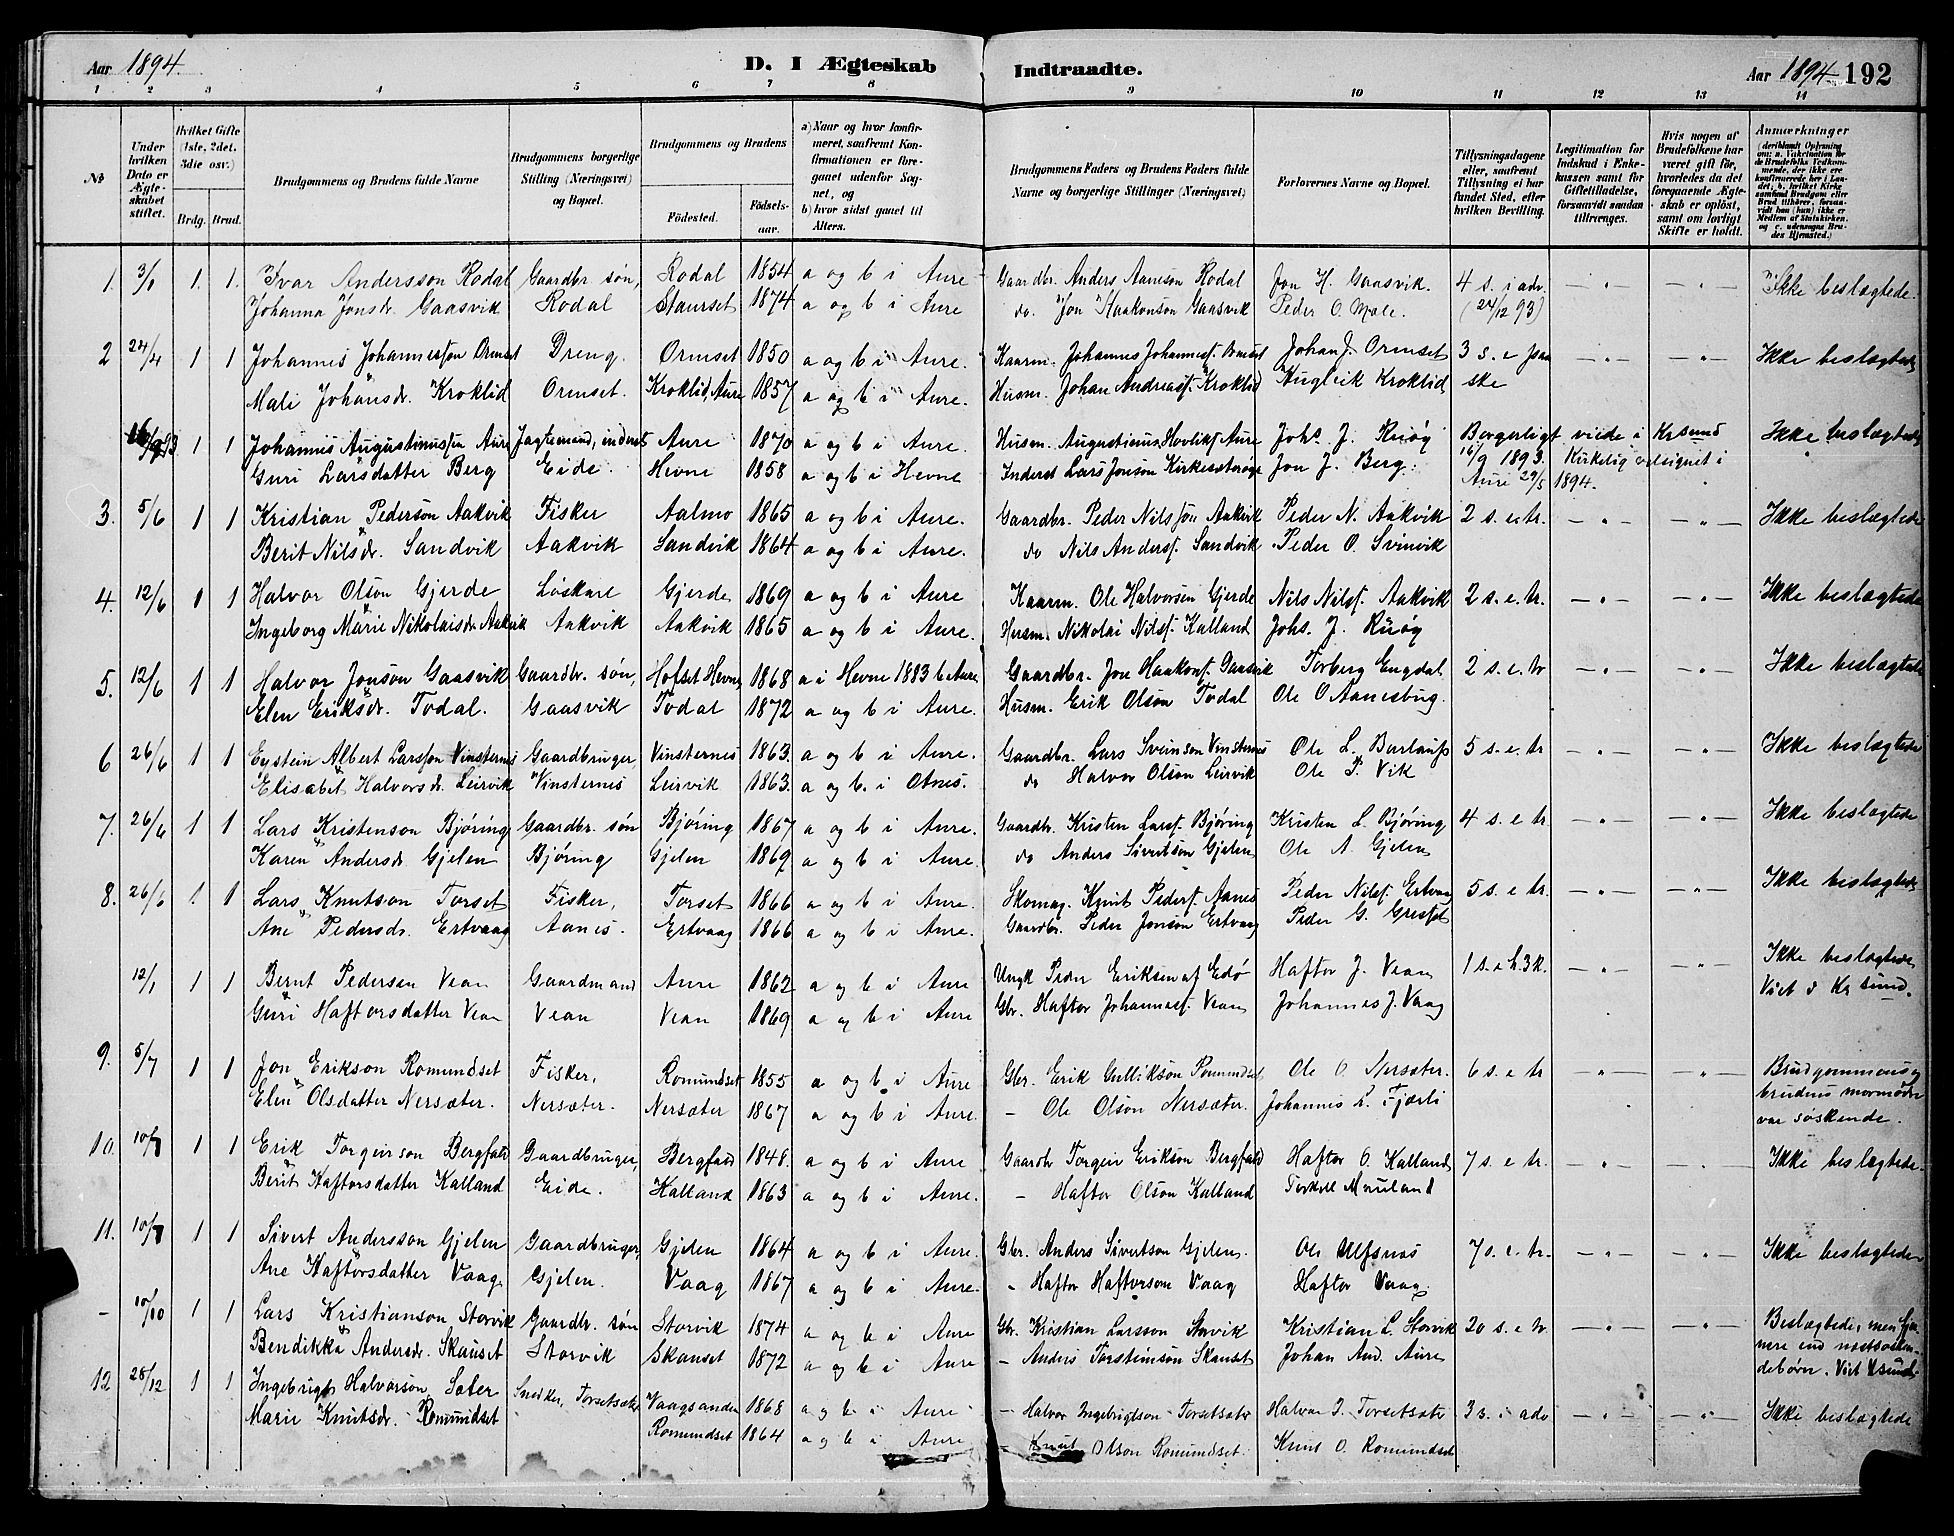 Aar 1894. D. I Ægteskab Indtraadte. Aar 1894 192
1 2 3 4 5 6 7 8 9 10 11 12 13 14
№
Under hvilken Dato er Ægteskabet stiftet.
Hvilket Gifte (1ste, 2det, 3die osv.)
Brdg. Brud.
Brudgommens og Brudens fulde Navne
Brudgommens borgerlige Stilling (Næringsvei) og Bopæl.
Brudgommens og Brudens
Födested. Födselsaar.
a) Naar og hvor konfirmeret, saafremt Konfirmationen er foregaaet udenfor Sognet, og
b) hvor sidst gaaet til Alters.
Brudgommens Faders og Brudens Faders fulde Navne og borgerlige Stillinger (Næringsvei)
Forlovernes Navne og Bopæl.
Tillysningsdagene eller, saafremt Tillysning ei har fundet Sted, efter hvilken Bevilling.
Legitimation for Indskud i Enkekassen samt for Giftetilladelse, forsaavidt saadan tiltrænges.
Hvis nogen af Brudefolkene har været gift før, hvorledes da det foregaaende Ægteskab er oplöst, samt om lovligt Skifte er holdt.
Anmærkninger (deriblandt Oplysning om: a. Vakcination for de Brudefolks Vedkommende, der ikke ere konfirmerede her i Landet, b. hvilket Kirkesamfund Brudgom eller Brud tilhörer, forsaavidt han (hun) ikke er Medlem af Statskirken, og c. udensogns Brudes Hjemsted.)
1. 3/1 1. 1. Ivar Andersson Rodal Gaardbr. søn, Rodal 1854 a og b i Aure Gaardbr. Anders Aaneson Rodal Jon H. Gaasvik. 4 s. i adv. — " — — " — Ikke beslægtede.
Johanna Jonsdr. Gaasvik Rodal Staurset 1874 a og b i Aure do. Jon Haakonson Gaasvik Peder O. Mæle. (24/12 93)
2 24/4 1 1 Johannes Johannesson Ormset Dreng. Ormset 1850 a og b i Aure. Kaarm. Johannes Johannesf. Ormset Johan J. Ormset 3 s. e paa — " — — " — Ikke beslægtede
Mali Johansdr. Kroklid Ormset. Kroklid, Aure 1857 a og b i Aure. Husm. Johan Andreasf. Kroklid Kugleik Kroklid ske
16/9 93 1 1 Johannes Augustinussøn Aure Jagtemand, inderst Aure 1870 a og b i Aure. Husm. Augustinus Hovlikf. Aure Johs. J. Ruøy Borgerligt viede i Krsund Ikke beslægtede
Guri Larsdatter Berg Eide. Hevne 1858 a og b i Hevne Inderst Lars Jonson Kirkesæterøre Jon J. Berg. 16/9 1893. Kirkelig velsignet i
Aure 27/5 1894.
3. 5/6 1 1 Kristian Pederson Aakvik Fisker Aalmo 1865 a og b i Aure. Gaardbr. Peder Nilsson Aakvik Peder N. Aakvik 2 s. e. tr. — " — — " — Ikke beslægtede
Berit Nilsdr. Sandvik Aakvik Sandvik 1864 a og b i Aure. do Nils Andersf. Sandvik Peder O. Svinvik
4. 12/6 1 1 Halvor Olson Gjerde Løskare Gjerde 1869 a og b i Aure Kaarm. Ole Halvorsen Gjerde Nils Nilsf. Aakvik 2 s. e. tr. — " — — " — Ikke beslægtede
Ingeborg Marie Nikolaisdr. Aakvik Aakvik Aakvik 1865 a og b i Aure. Husm. Nikolai Nilsf. Kalland Johs. J. Ruøy
5. 12/6 1 1 Halvor Jonson Gaasvik Gaardbr. søn, Hofset Hevne 1868 a i Hevne 1883 b Aure Gaardbr. Jon Haakonf. Gaasvik Torberg Engdal 2 s. e. tr — " — — " — Ikke beslægtede
Elen Eriksdr. Todal. Gaasvik Todal 1872 a og b i Aure. Husm. Erik Olson Todal Ole O Aanesbug.
6 26/6 1 1 Eystein Albert Larsson Vinsternes Gaardbruger, Vinsternes 1863. a og b i Aure. Gaardbr. Lars Sveinson Vinsternes Ole L. Burlaup 5 s. e. tr — " — — " — Ikke beslægtede
Elisabet Halvorsdr. Leirvik Vinsternes Leirvik 1863. a og b. i Otnes. do Halvor Olson Leirvik Ole P. Vik
7. 26/6 1 1 Lars Kristenson Bjøring Gaardbr. søn Bjøring 1867 a og b i Aure. Gaardbr. Kristen Larsf. Bjøring Kristen L. Bjøring 4 s. e tr. — " — — " — Ikke beslægtede
Karen Andersdr. Gjelen Bjøring Gjelen 1869 a og b i Aure. do Anders Sivertson Gjelen Ole A. Gjelen
8. 26/6 1 1 Lars Knutson Torset Fisker, Torset 1866 a og b i Aure. Skomag. Knut Pedersf. Aanes Peder Nilsf. Ertvaag 5 s. e tr. — " — — " — Ikke beslægtede
Ane Pedersdr. Ertvaag Aanes. Ertvaag 1866 a og b i Aure. Gaardbr. Peder Jonson Ertvaag Peder G. Grisset
12/1 1 1 Bernt Pedersen Vean Gaardmand Aure 1862 a og b i Aure Ungk Peder Eriksen af Edø Haftor J. Vean 1 s. e h. 3 k. — " — — " — Ikke beslægtede
Guri Haftorsdatter Vean Vean Vean 1869 a og b i Aure Gbr. Haftor Johannesf. Vean Johannes J. Vaag Viet i Krsund.
9. 5/7 1 1 Jon Erikson Romundset Fisker, Romundset 1855 a og b i Aure Gbr. Erik Gulikson Romundset Ole O Nersæter. 6 s. e tr — " — — " — Brudgommens og
Elen Olsdatter Nersæter. Nersæter. Nersæter 1867 a og b i Aure. — Ole Olson Nersæter. Johannes L. Fjærli brudens mormødre
var søskende.
10. 10/7 1 1 Erik Torgeirson Bergfald Gaardbruger, Bergfald 1848. a og b i Aure Gaardbr Torgeir Erikson Bergfald Haftor O. Kalland 7 s. e tr. — " — — " — Ikke beslægtede.
Berit Haftorsdatter Kalland Eide. Kalland 1863 a og b i Aure. — Haftor Olson Kalland Torkell Mruland
11. 10/7 1 1 Sivert Andersson Gjelen Gaardbruger, Gjelen 1864 a og b i Aure. Gbr. Anders Sivertson Gjelen. Ole Ulfsnes 7 s. e. tr. — " — — " — Ikke beslægtede
Ane Haftorsdatter Vaag. Gjelen. Vaag 1867 a og b i Aure. — Haftor Haftorson Vaag Haftor Vaag.
— 10/10 1 1 Lars Kristianson Storvik Gaardbr. søn Storvik 1874 a og b i Aure Gbr. Kristian Larsson Storvik Kristian L. Storvik 20 s. e tr. — " — — " — Beslægtede, men fjer-
Bendikka Andersdr. Skauset Storvik Skauset 1872 a og b i Aure — Anders Torsteinson Skauset Johan And. Aure nere end næstsøsken-
debørn. Viet Ksund.
12 28/12 1 1 Ingebrigt Halvorson Sæter Snedker, Torsetsæter Vaagsanden 1868 a og b i Aure — Halvor Ingebrigtson Torsetsæter Halvor I. Torsetsæter 3 s. i adv — " — — " — Ikke beslægtede
Marie Knutsdr. Romundset Romundset 1864 a og b i Aure — Knut Olson Romundset. Knut O. Romundset